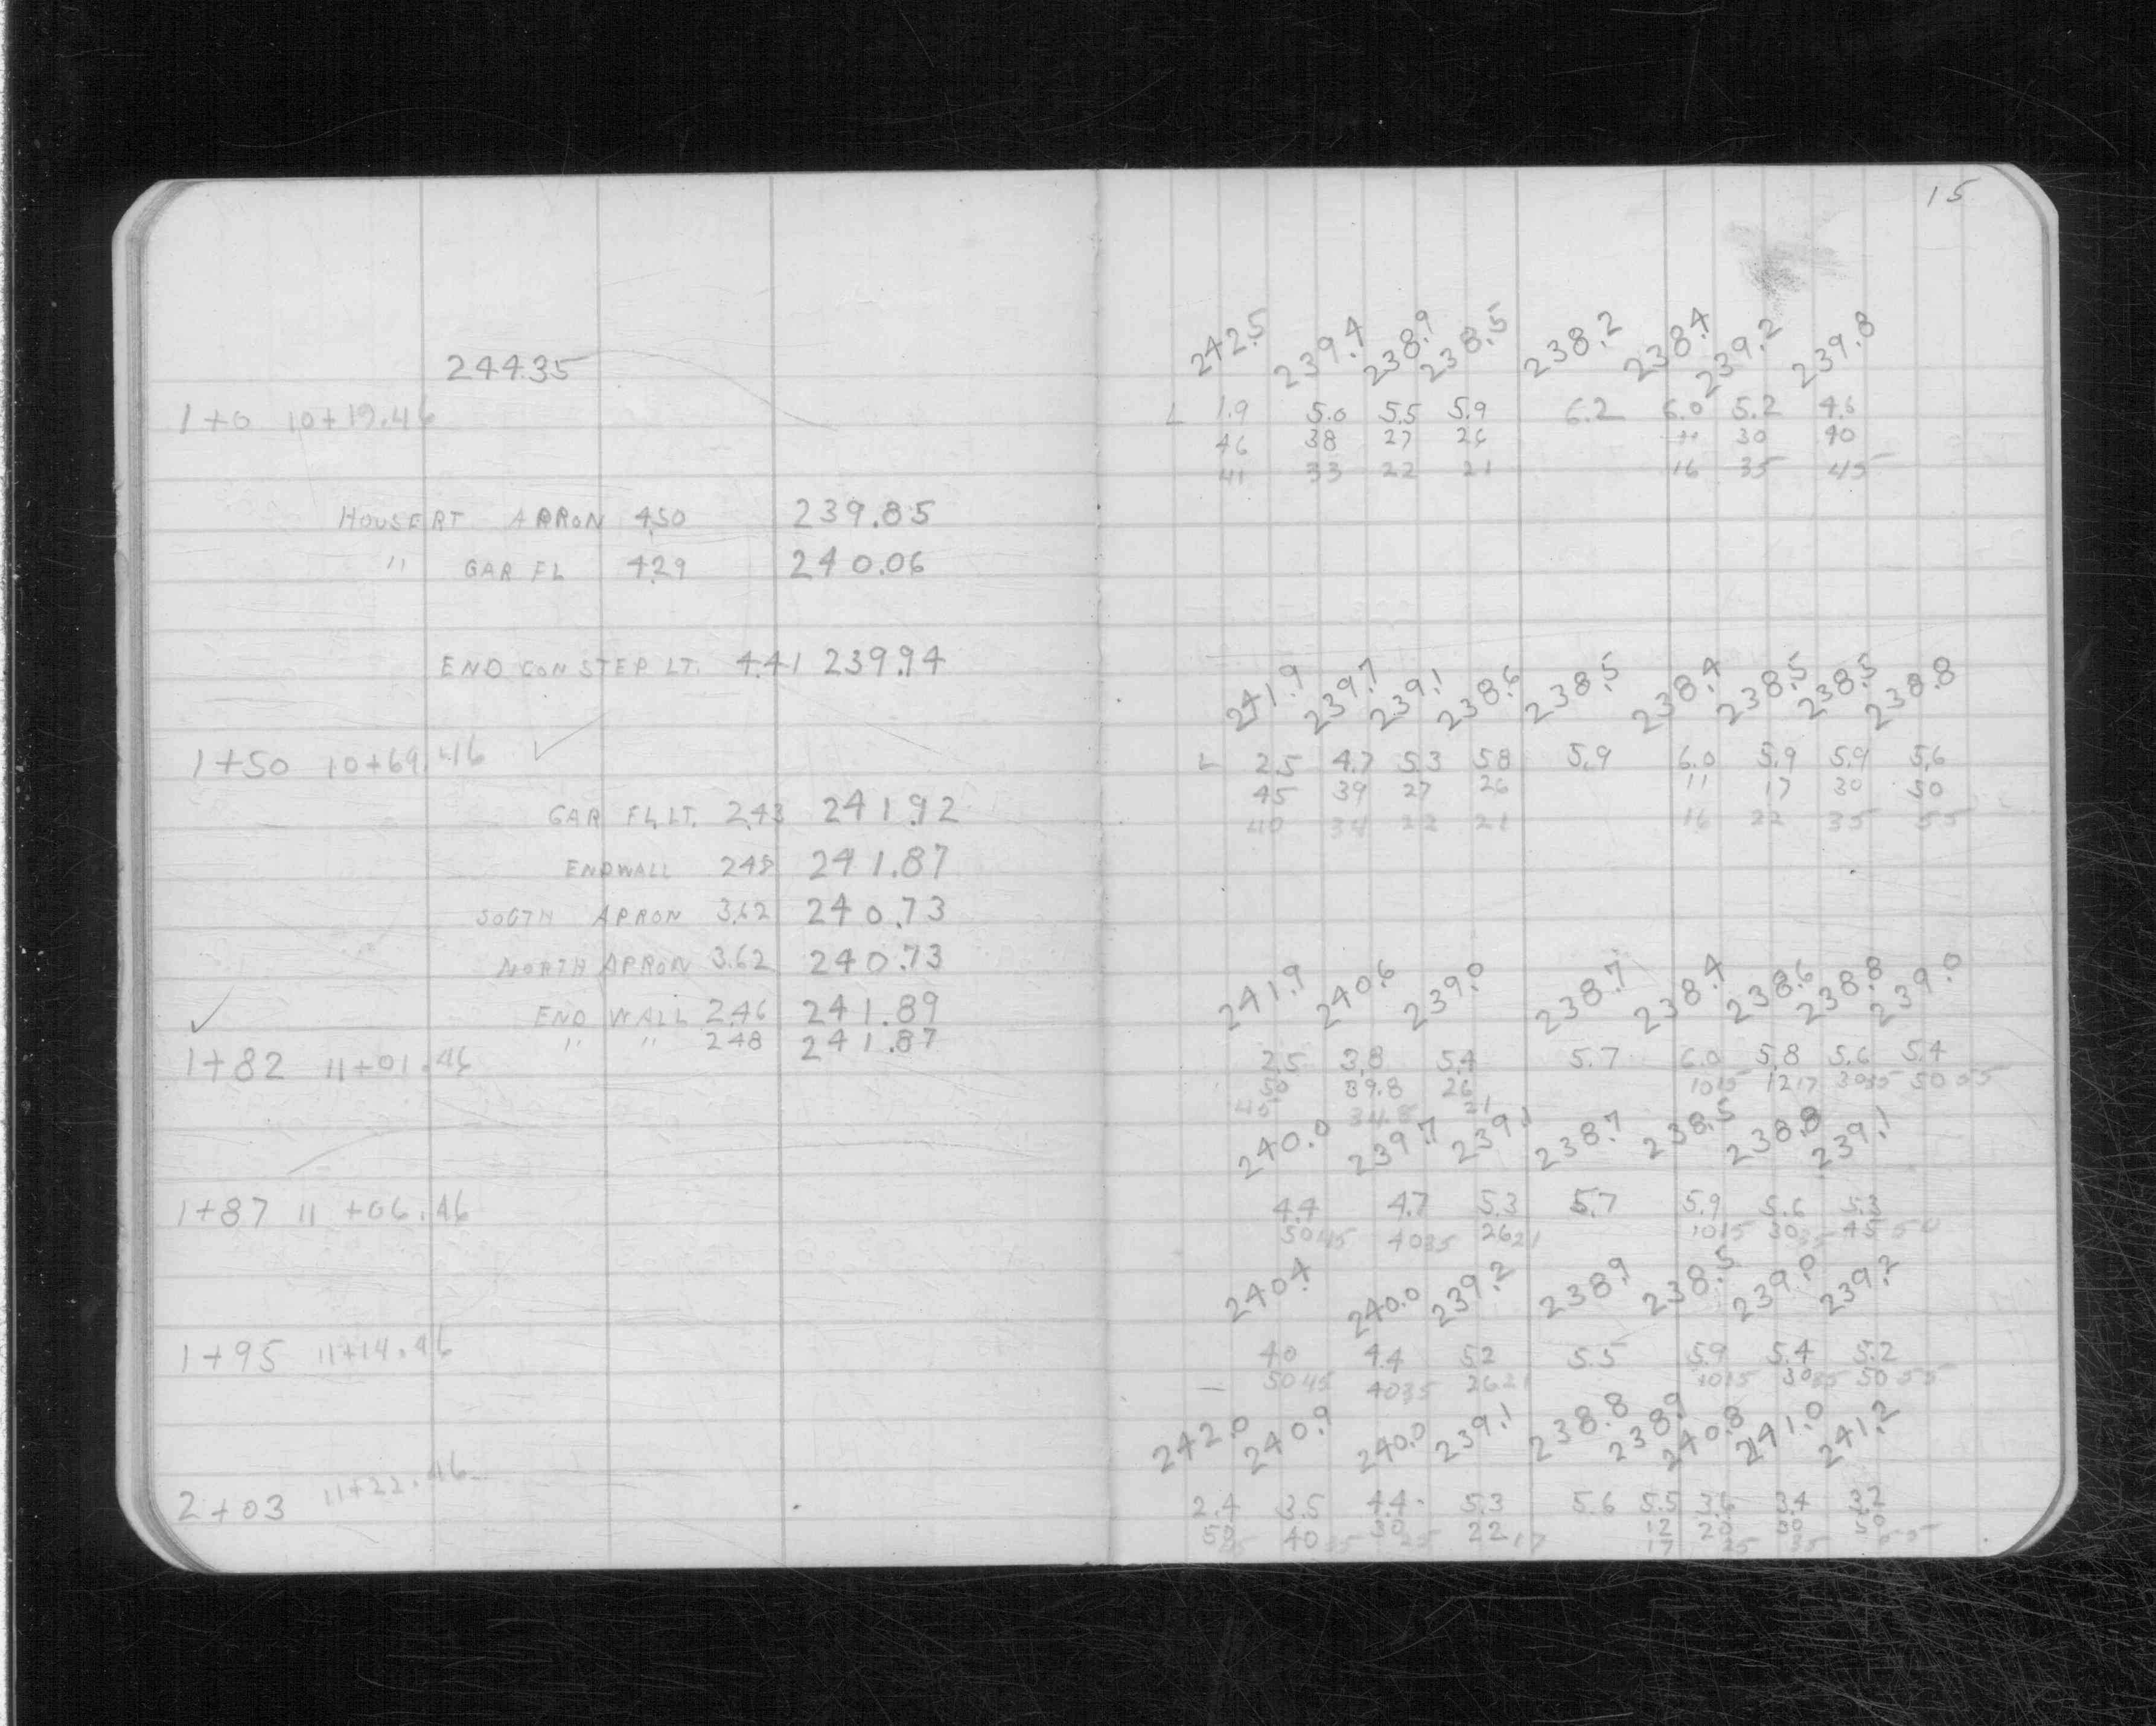 15
244.35
242.5 239.4 238.9 238.5 238.2 238.4 239.2 239.8
1+0 10+19.46
L 1.9 5.0 5.5 5.9 6.2 6.0 5.2 4.6
46 38 27 26 11 30 40
41 33 22 21 16 35 45
HOUSE RT APRON 4.50 239.85
" GAR FL 4.29 240.06
END CON STEP LT. 4.41 239.94
241.9 239.7 239.1 238.6 238.5 238.4 238.5 238.5 238.8
1+50 10+69.46 ✓
L 2.5 4.7 5.3 5.8 5.9 6.0 5.9 5.9 5.6
45 39 27 26 11 17 30 50
40 34 22 21 16 22 35 55
GAR FL LT. 2.43 241.92
ENDWALL 2.48 241.87
SOUTH APRON 3.62 240.73
NORTH APRON 3.62 240.73
END WALL 2.46 241.89
" " 2.48 241.87
241.9 240.6 239.0 238.7 238.4 238.6 238.8 239.0
✓
1+82 11+01.46
2.5 3.8 5.4 5.7 6.0 5.8 5.6 5.4
50 39.8 26 10 15 12 17 30 35 50 55
45 34.8 21
240.0 239.7 239.1 238.7 238.5 238.8 239.1
1+87 11+06.46
4.4 4.7 5.3 5.7 5.9 5.6 5.3
50 45 40 35 26 21 10 15 30 35 45 50
240.4 240.0 239.2 238.9 238.5 239.0 239.2
1+95 11+14.46
4.0 4.4 5.2 5.5 5.9 5.4 5.2
50 45 40 35 26 21 10 15 30 35 50 55
242.0 240.9 240.0 239.1 238.8 238.9 240.8 241.0 241.2
2+03 11+22.46
2.4 3.5 4.4 5.3 5.6 5.5 3.6 3.4 3.2
50 40 35 30 25 22 17 12 20 30 50
17 25 35 55